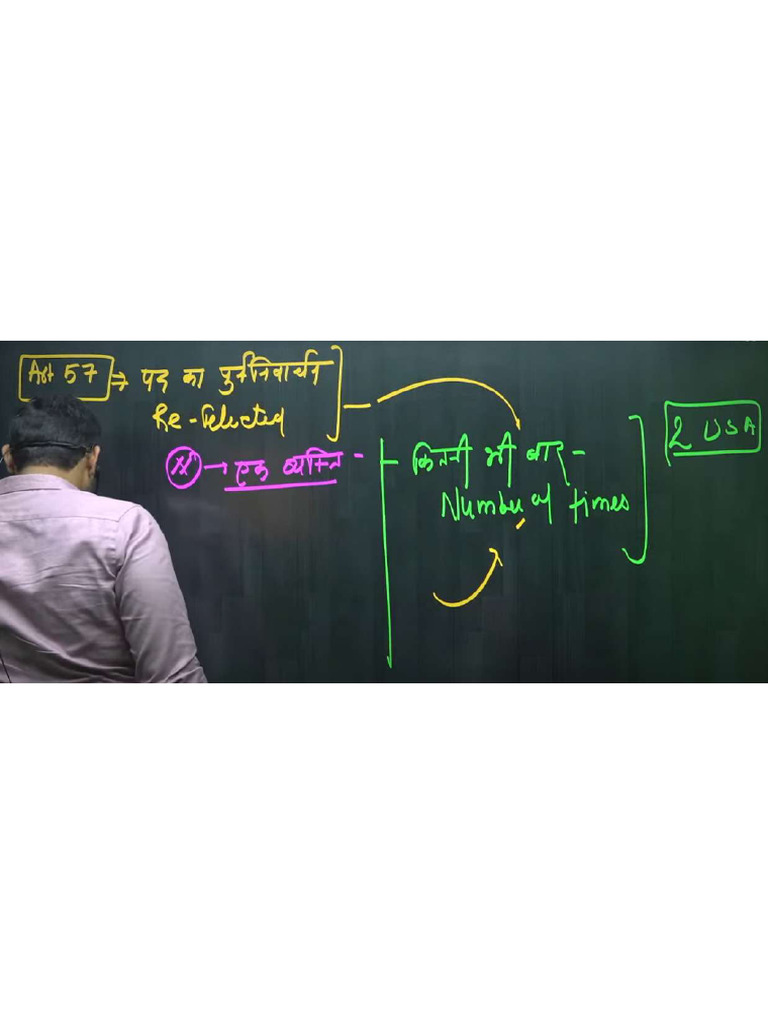 Art 57 → पद का पुर्ननिवार्चन
Re-Elected
→ एक व्यक्ति -
कितनी भी बार -
Number of times
2 USA